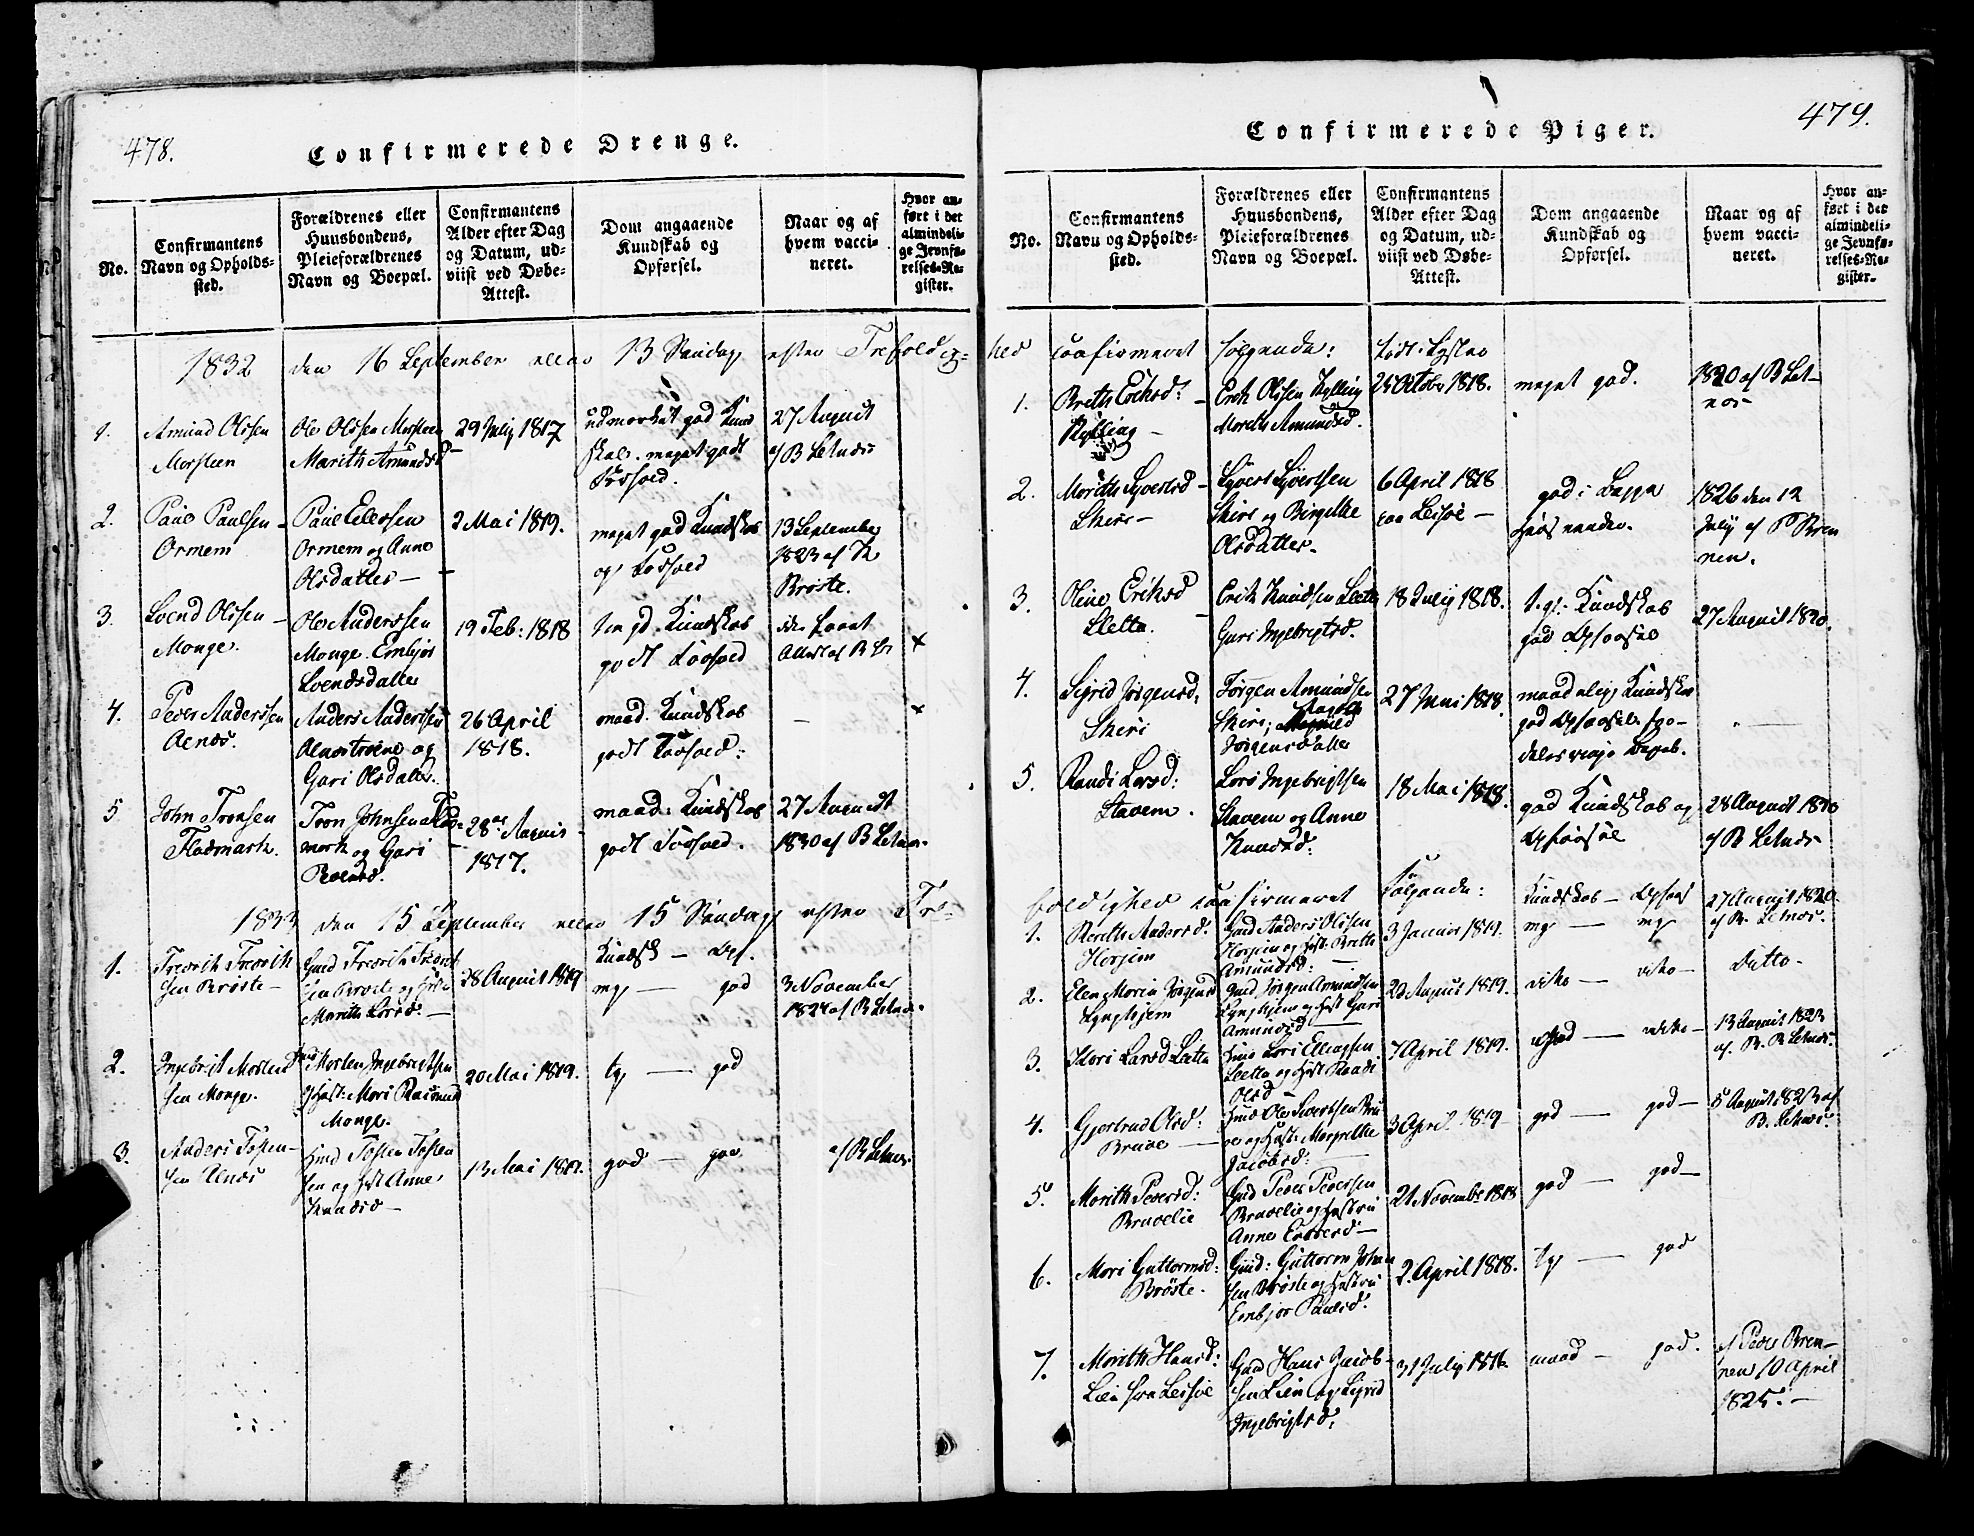 478.
Confirmerede Drenge.
No.
Confirmantens
Navn og Opholds-
sted.
Forældrenes eller
Huusbondens,
Pleieforældrenes
Navn og Boepæl.
Confirmantens
Alder efter Dag
og Datum, ud-
viist ved Døbe-
Attest.
Dom angaaende
Kundskab og
Opførsel.
Naar og af
hvem vacci-
neret.
Hvor an-
ført i det
almindeli-
ge Jevnfø-
relses-Re-
gister.
1832 den 16 September eller 13 Søndag efter Trefoldig-
1.
Amund Olssen
Morsteen
Ole Olssen Morsteen
Marith Amundsd
29 Julij 1817
udmærket god Kund
skab. meget godt
Forhold.
27 August
af B Letnæs
2.
Paul Paulsen
Ormem
Paul Ellevsen
Ormem og Anne
Olsdatter
2 Mai 1819.
meget god Kundskab
og Forhold
13 September
1823 af
Brøste.
3.
Svend Olssen
Monge.
Ole Anderssen
Monge. Embjør
Svendsdatter
19 Feb: 1818
Kundskab
godt Forhold
Attest af B L
×
4.
Peder Anderssen
Aenæs.
Anders Anderssen
og
Guri Olsdatter.
26 April
1818.
maad. Kundskab
godt Forhold:
–
×
5
John Tronsen
Fladmark.
Tron Johnsen Flad-
mark og Guri
28de August
1817.
maad: Kundskab
godt Forhold.
27 August
1830 af B Letnæs.
1833 den 15 September eller 15 Søndag efter Tre-
1.
Fredrik Fredrik
sen Brøste
Gmd Fredrik Fredrik
sen Brøste og
Marith Larsd.
28 August 1819
Kundsk – Opf.
mg — god
3 November
1824 af B Letnæs.
2.
Ingebrit Morten
sen Monge.
Morten Ingebrigtsen
Mari Rasmusd
Monge.
20 Mai 1819.
tg — god
3.
Anders Tosten-
sen Aenæs
Hmd Tosten Tosten
sen og Hst Anne
Knudsd –
13 Mai 1819.
god — god
af B Letnæs
479.
Confirmerede Piger.
No.
Confirmantens
Navn og Opholds-
sted.
Forældrenes eller
Huusbondens,
Pleieforældrenes
Navn og Boepæl.
Confirmantens
Alder efter Dag
og Datum, ud-
viist ved Døbe-
Attest.
Dom angaaende
Kundskab og
Opførsel.
Naar og af
hvem vacci-
neret.
Hvor an-
ført i det
almindeli-
ge Jevnfø-
relses-Re-
gister.
hed confirmeret følgende:
1.
Brith Eriksd:
Kylling –
Erik Olssen Kylling
Marith Amundsd.
25 Octobr 1818.
meget god.
1820 af B Let-
næs
2.
Marith Syvertsd
Skire –
Syvert Syvertsen
Skire og Birgithe
Olsdatter.
6 April 1818
paa Lesøe –
god i Begge
Henseender.
1826 den 12
July af P Bren
nen.
3.
Oline Eriksd
Sletta.
Erik Knudsen Sletta
Guri Ingebrigtsd.
18 Julij 1818.
t. g. Kundskab
god Opførsel
27 August 1820.
4.
Sigrid Jørgensd.
Skiri
Jørgen Amundsen
Skire;
Jørgensdatter
27 Juni 1818
maadelig Kundskab
god Opførsel
5.
Randi Larsd:
Stavem.
Lars Ingebrigtsen
Stavem og Anne
Knudsd:
18 Mai 1818.
god Kundskab og
Opførsel
28 August 1820
af B Letnæs
foldighed confirmeret Følgende:
Kundskab – Opførs
1.
Berith Andersd.
Horgiem
Gmd Anders Olssen
Horgiem og Hst: Brith
Amundsd:
3 Januar 1819.
mg — mg
27 August 1820
af B. Letnæs.
2.
Elen Maria Jørgensd
Lyngheim
Gmd Jørgen Amundsen
Lyngheim og Hst Guri
Amundsd
20 August 1819.
dito — dito –
Ditto –
3.
Kari Larsd Sletta
Hmd Lars Ellingsen
Sletta og Hst Randi
Olsd –
7 April 1819.
god — dito –
13 August 1823
af. B. Letnæs.
4.
Gjertrud Olsd:
Brude
Hmd Ole Sivertsen Bru
de og Hst: Margrethe
Jacobsd:
3 April 1819
god — god –
5 August 1823 af
B. Letnæs.
5.
Marith Pedersd:
Brudelie
Gmd Peder Pedersen
Brudelie og Hustru
Anne
21 November 1818
god — god –
6.
Mari Guttormsd:
Brøste.
Gmd: Guttorm John
sen Brøste og Hustru
Embjør Paulsd.
2. April 1818.
tg — god
7.
Marith Hansd:
Lien fra Lesiøe
Gmd Hans Jacob-
sen Lien og Sigrid
Ingebrigtsd.
31 Julij 1816
maad – god.
af Peder Bren-
nen 10 April
1825. –